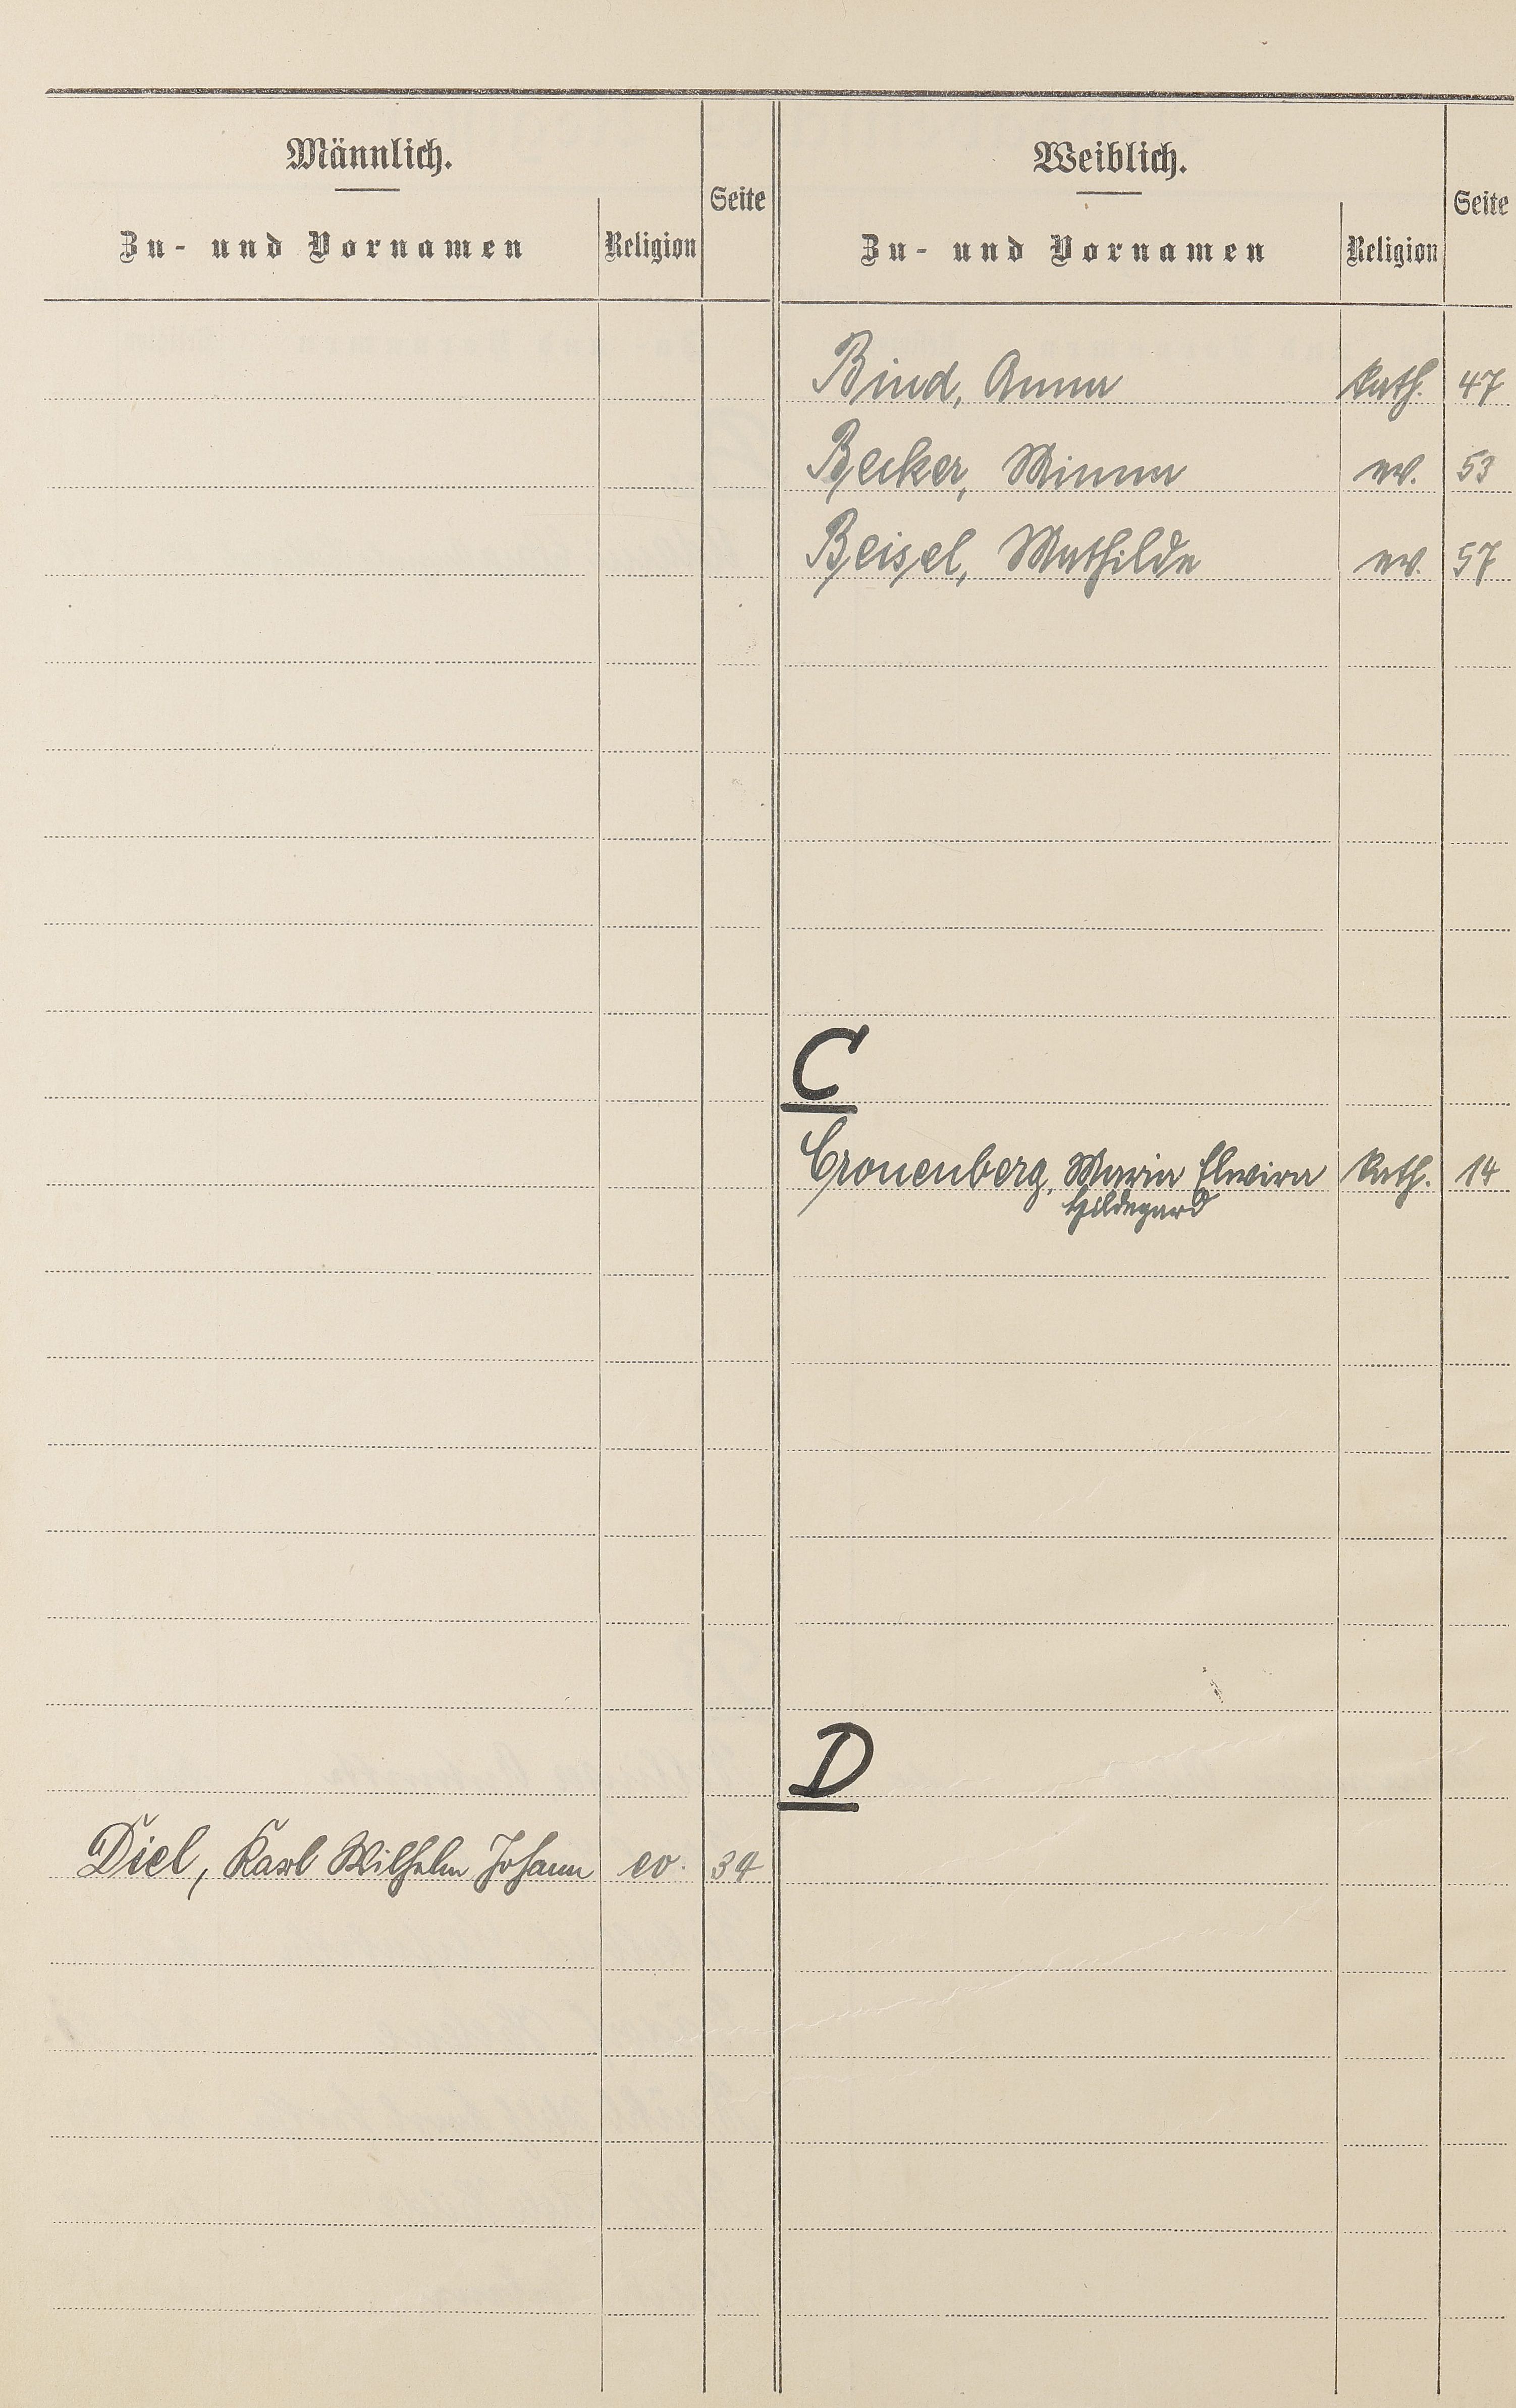 Männlich.
Zu- und Vornamen
Religion
Seite
Weiblich.
Zu- und Vornamen
Religion
Seite
Bind, Anna kath. 47
Becker, Minna ev. 53
Beisel, Mathilde ev. 57
C
Cronenberg, Maria Elwira kath. 14
Hildegard
D
Diel, Karl Wilhelm Johann ev. 34